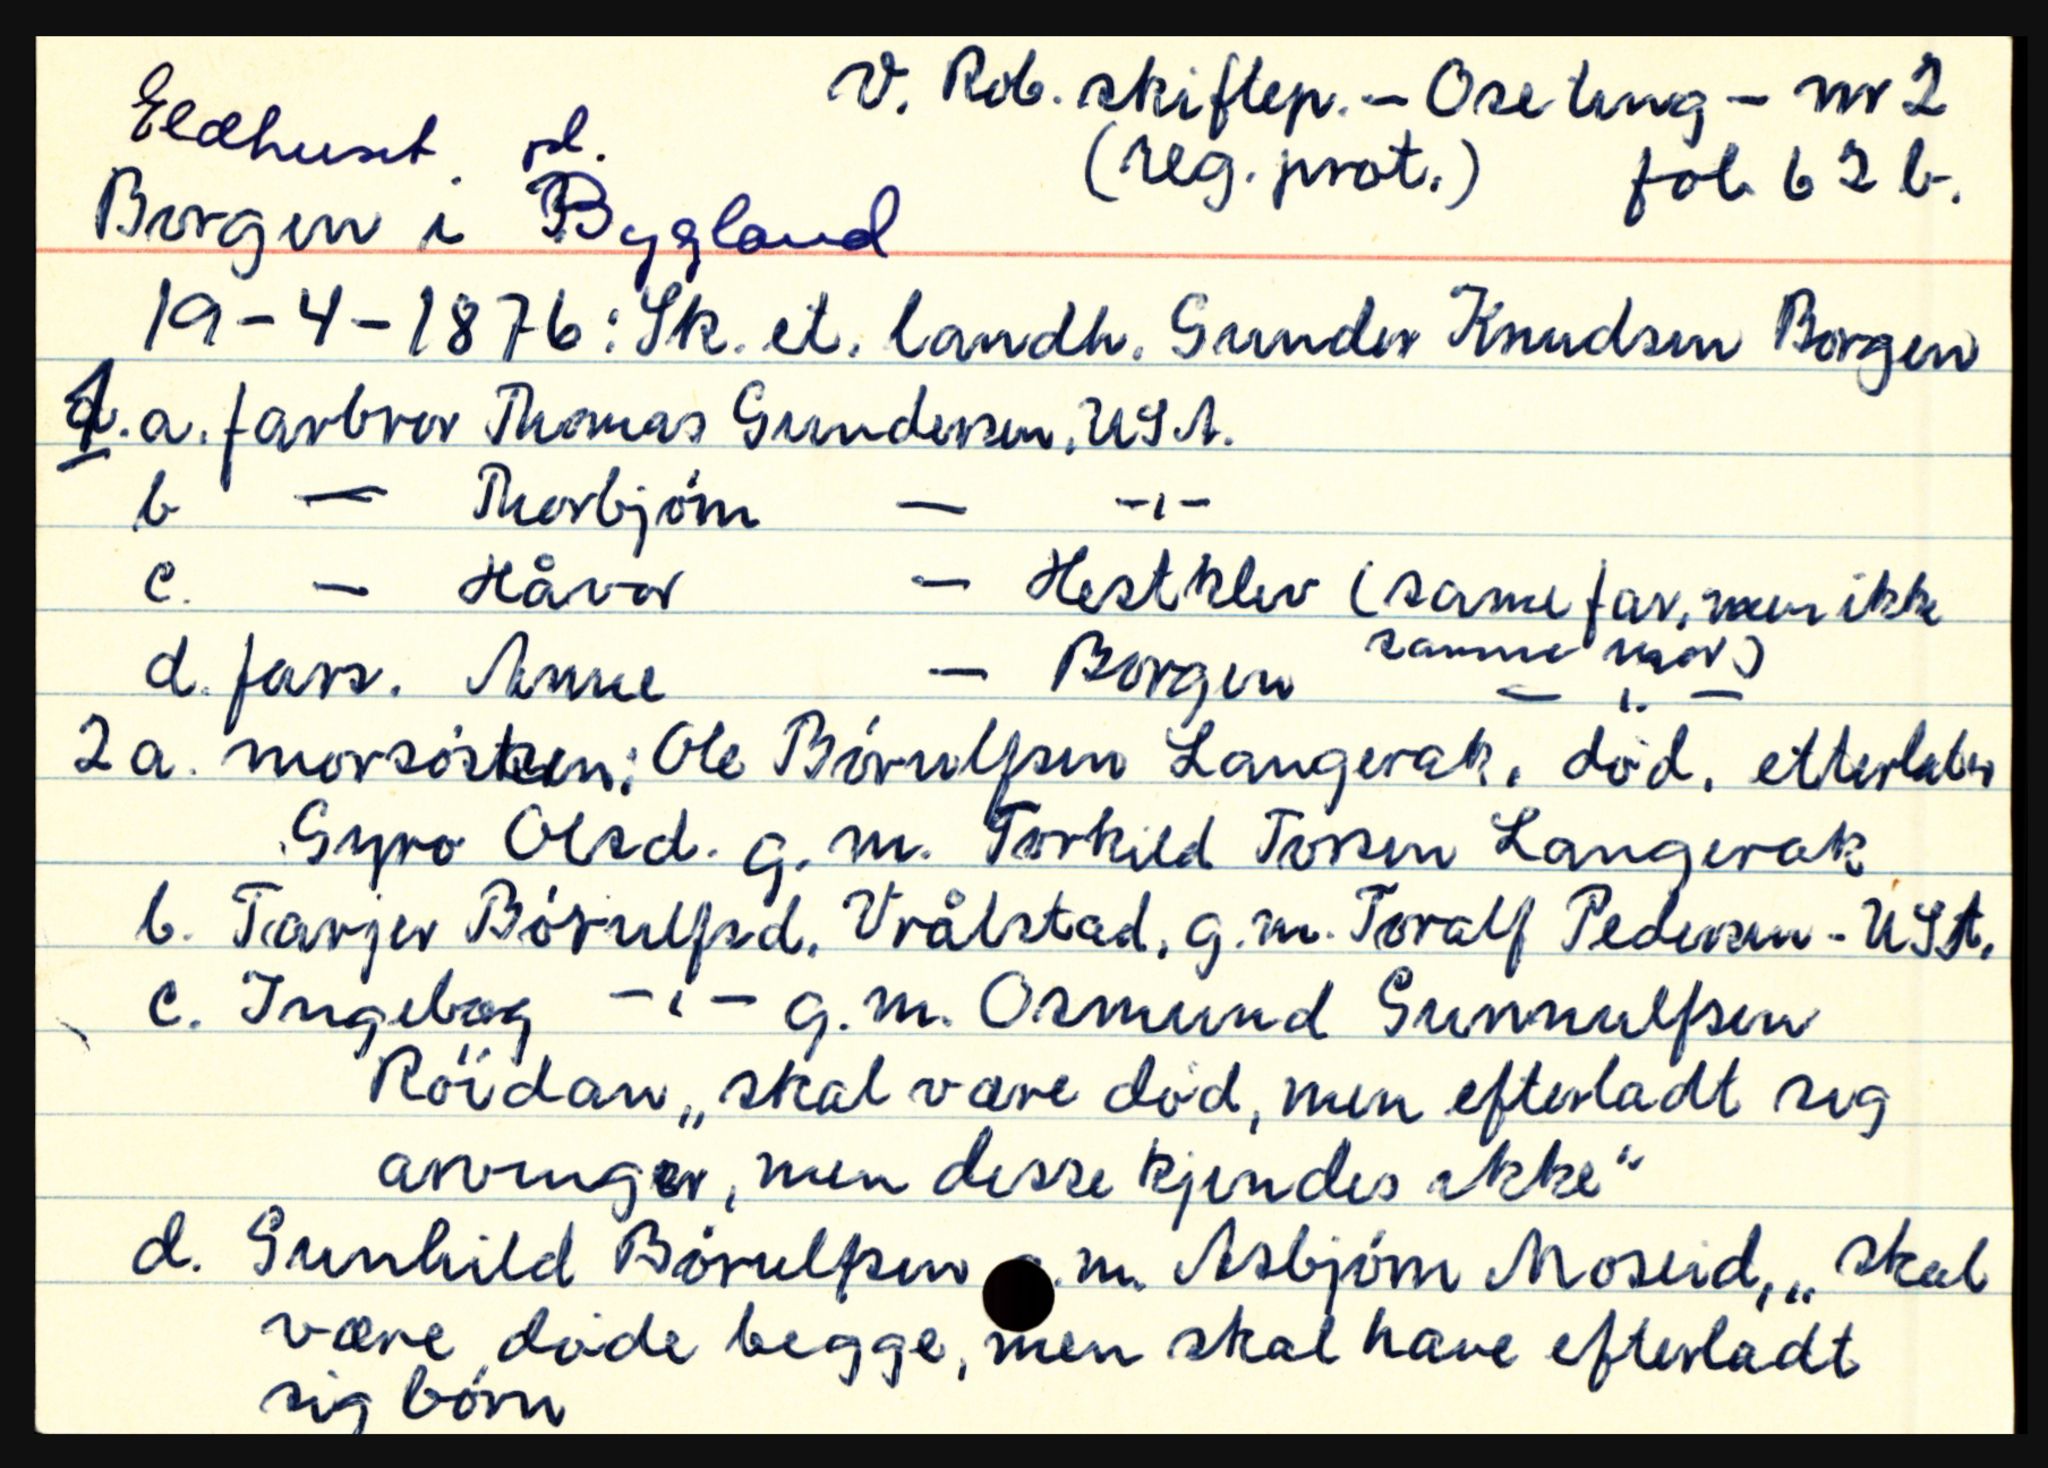 V. Rob. skiftep. - Ose ting - nr 2
Eldhuset rd. (reg. prot.) fol. 62 b.
Borgen i Bygland
19-4-1876: Sk. et. landh. Gunder Knudsen Borgen
1.a. farbror Thomas Gundersen, USA.
b — Thorbjørn — -"-
c. — Håvor — Hestklev (same far, men ikke
samme mor)
d. fars. Anne — Borgen — " —
2 a. morsøsken: Ole Børulfsen Langerak, død, etterlater
Gyro Olsd. g. m. Torkild Torsen Langerak
b. Tarjer Børulfsd. Vrålstad, g.m. Toralf Pedersen - USA.
c. Ingebog -"- g. m. Osmund Gunnulfsen
Röidan „skal være død, men efterladt sig
arvinger, men disse kjendes ikke"
d. Gunhild Børulfsen g.m. Asbjørn Moseid, „skal
være døde begge, men skal have efterladt
sig børn